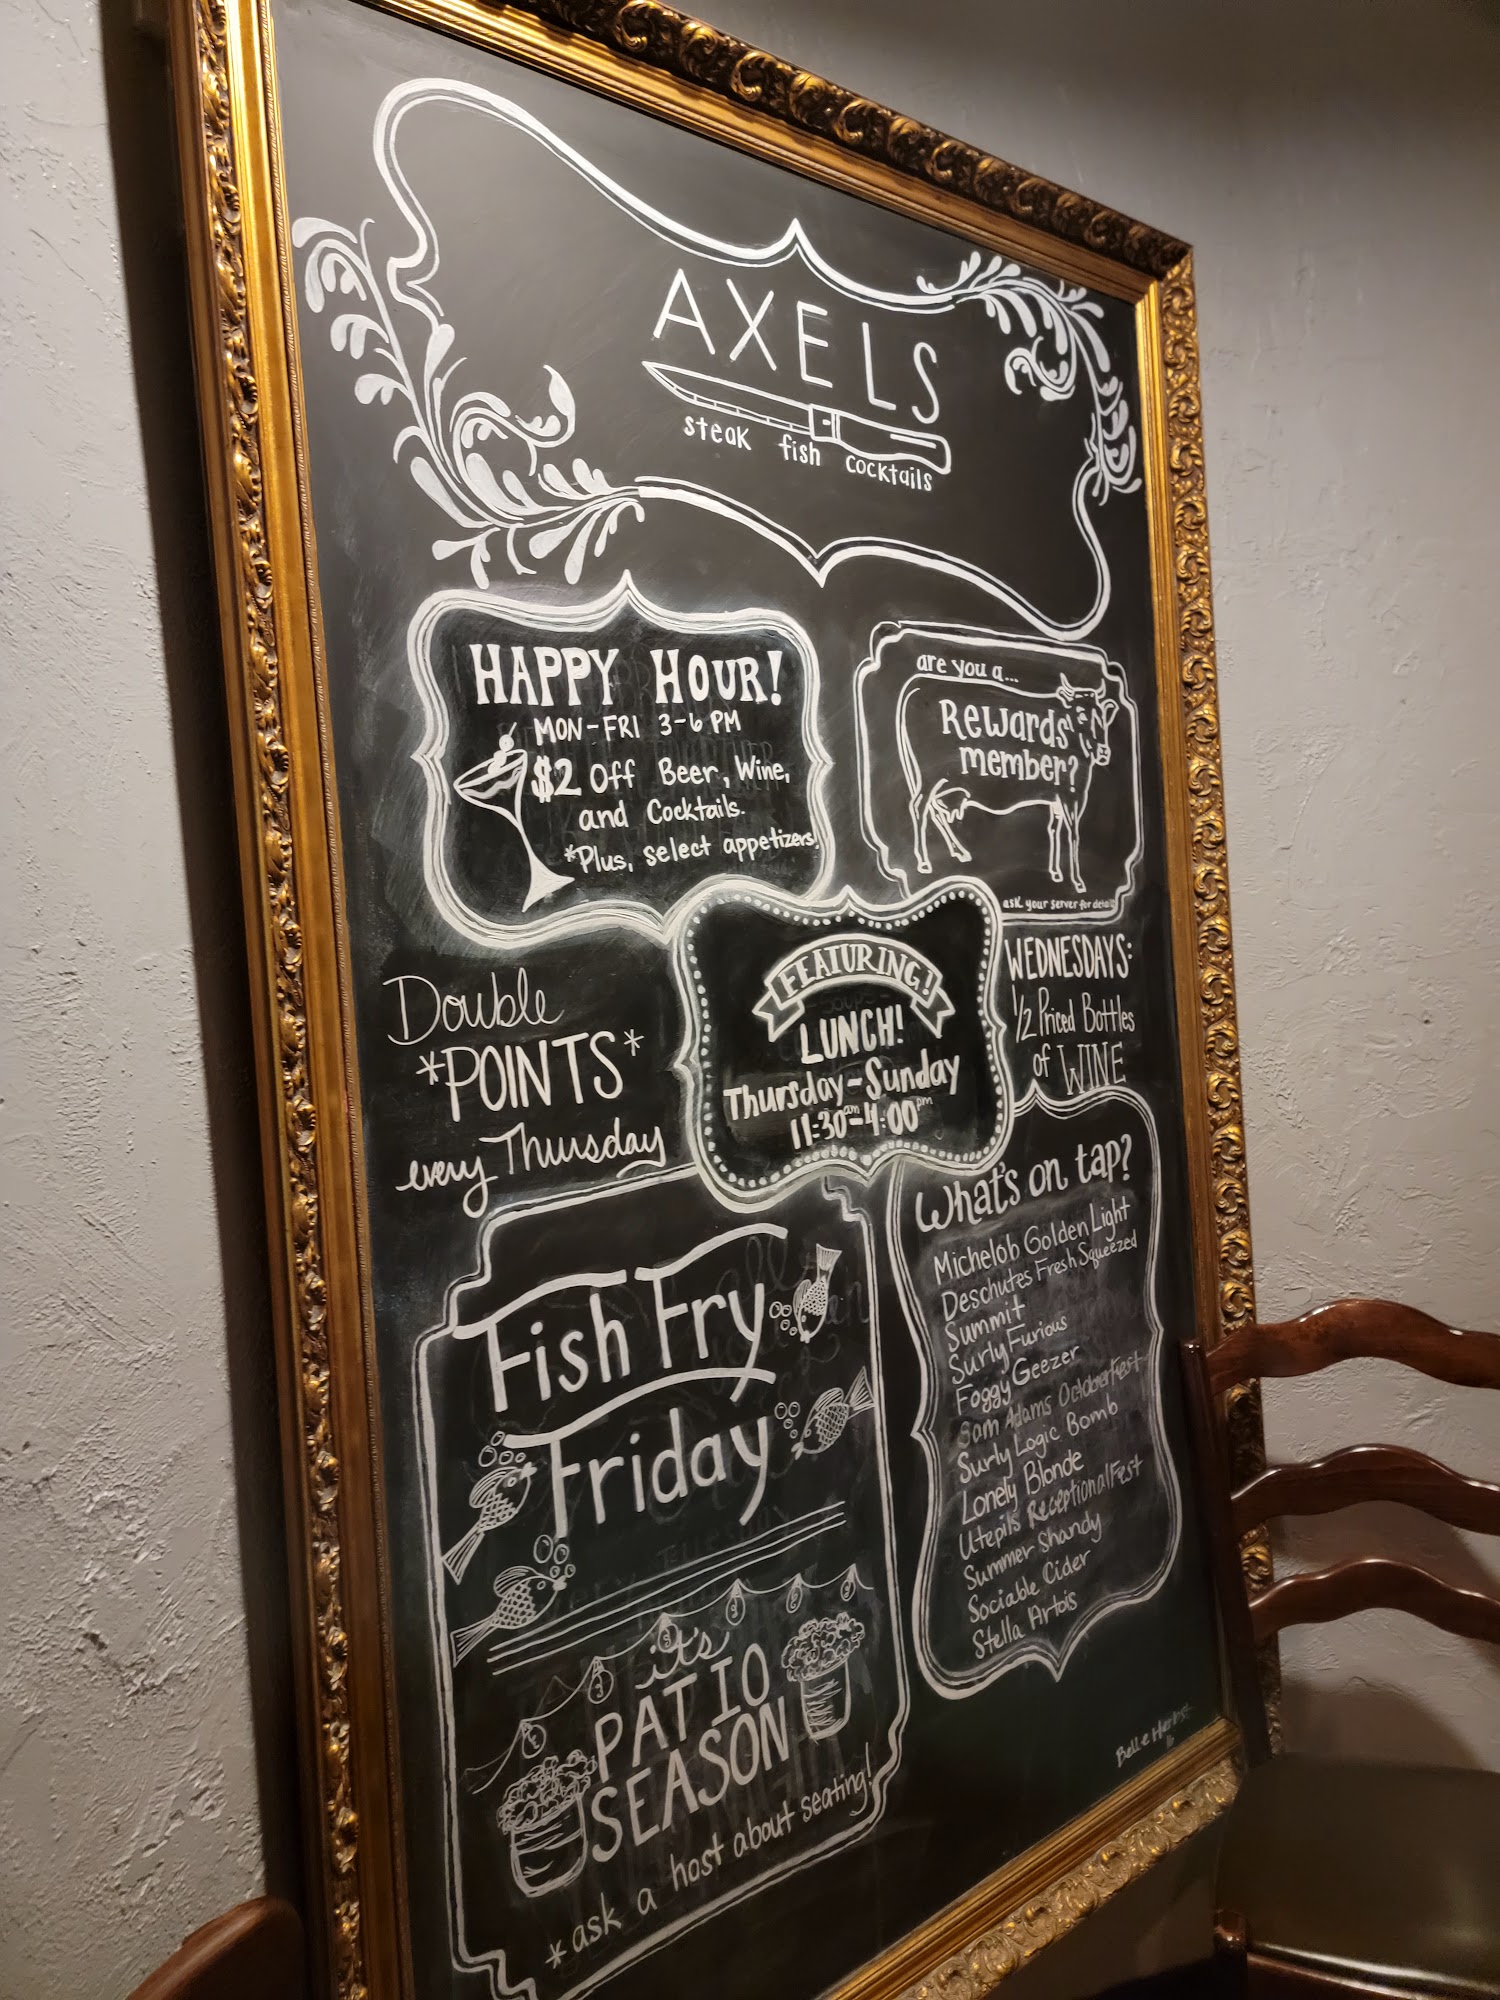 AXELS
steak fish cocktails
HAPPY HOUR!
MON-FRI 3-6 PM
$2 Off Beer, Wine,
and Cocktails.
*Plus, select appetizers!
are you a...
Rewards
member?
ask your server for details
FEATURING!
LUNCH!
Thursday-Sunday
11:30am-4:00pm
WEDNESDAYS:
1/2 Priced Bottles
of WINE
Double
*POINTS*
every Thursday
Fish Fry
Friday
it's
PATIO
SEASON
*ask a host about seating!
What's on tap?
Michelob Golden Light
Deschutes Fresh Squeezed
Summit
Surly Furious
Foggy Geezer
Sam Adams Octoberfest
Surly Logic Bomb
Lonely Blonde
Utepils ReceptionalFest
Summer Shandy
Sociable Cider
Stella Artois
Belle Herbst